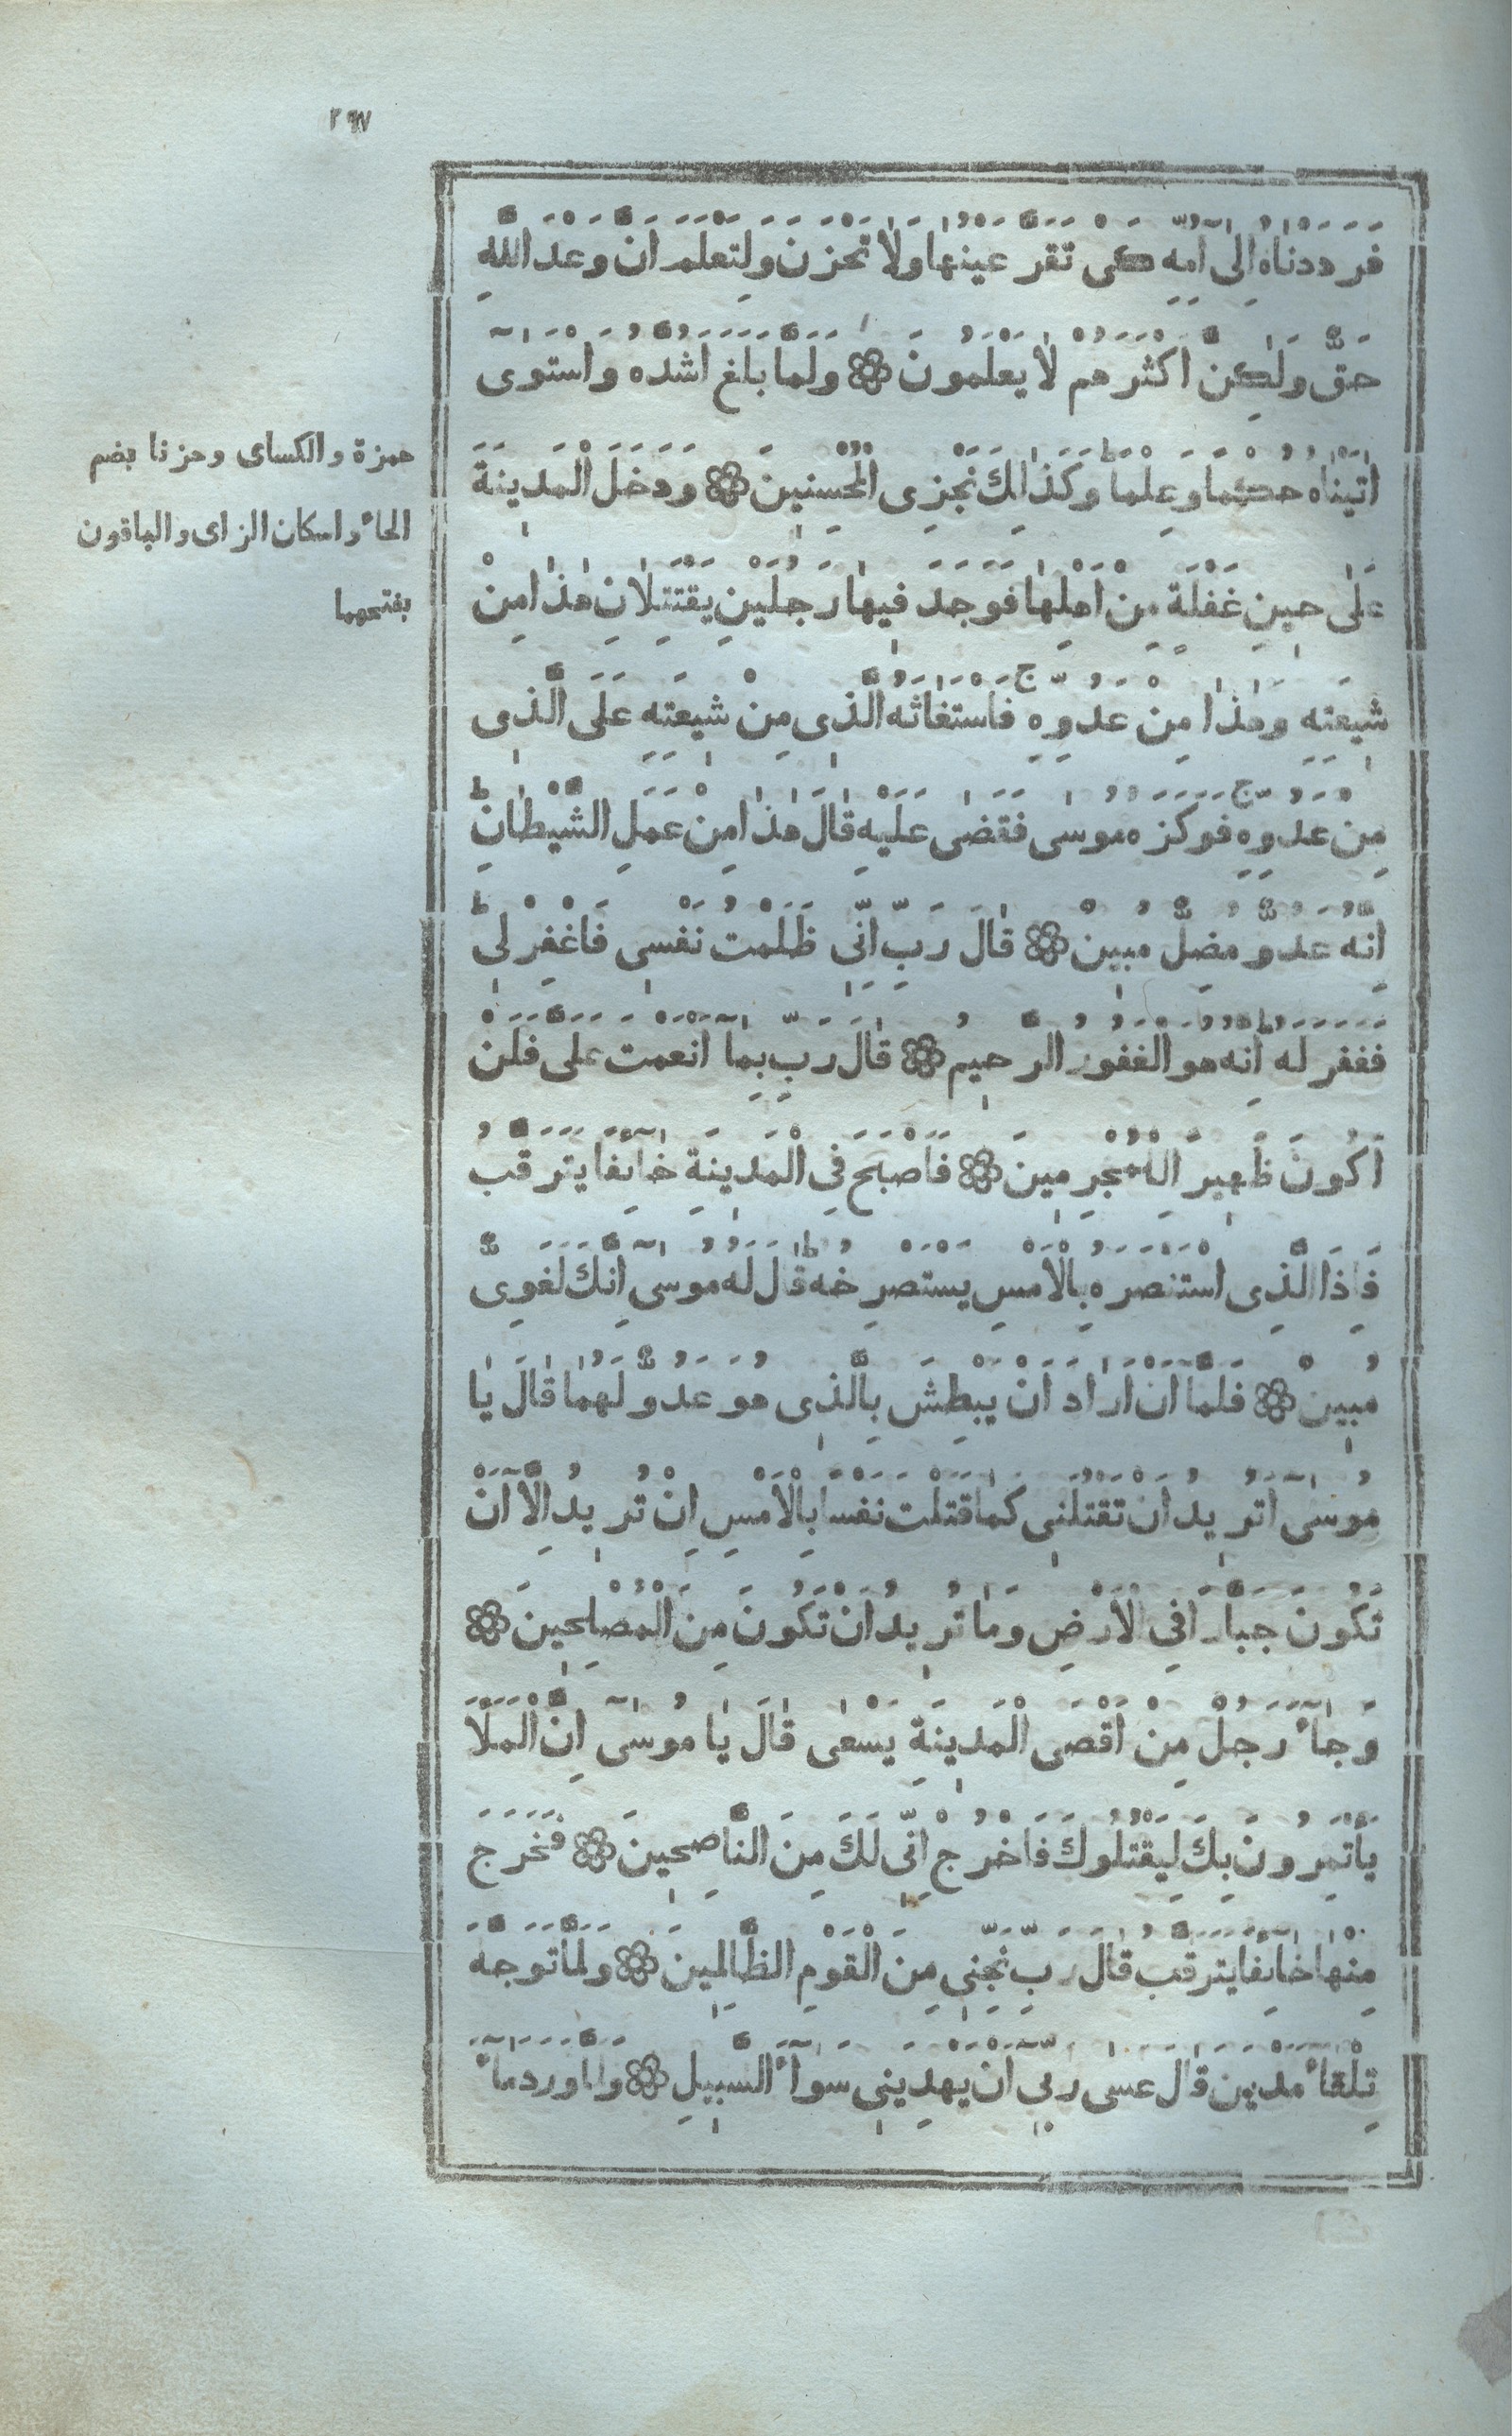 ٢٩٧
فَرَدَدْنَاهُ اِلٰٓى اُمِّهٖ كَىْ تَقَرَّ عَيْنُهَا وَلٰا تَحْزَنَ وَلِتَعْلَمَ اَنَّ وَعْدَ اللّٰهِ
حَقٌّ وَلٰكِنَّ اَكْثَرَهُمْ لٰا يَعْلَمُونَ ۞ وَلَمَّا بَلَغَ اَشُدَّهُ وَاسْتَوٰٓى
اٰتَيْنَاهُ حُكْمًا وَعِلْمًا ط وَكَذٰلِكَ نَجْزِى الْمُحْسِنِينَ ۞ وَدَخَلَ الْمَدِينَةَ
عَلٰى حِينِ غَفْلَةٍ مِنْ اَهْلِهٰا فَوَجَدَ فِيهٰا رَجُلَيْنِ يَقْتَتِلٰانِ هٰذٰا مِنْ
شِيعَتِهِ وَهٰذٰا مِنْ عَدُوِّهِ ج فَاسْتَغٰاثَهُ الَّذِى مِنْ شِيعَتِهِ عَلَى الَّذِى
مِنْ عَدُوِّهِ ج فَوَكَزَهُ مُوسٰى فَقَضٰى عَلَيْهِ قٰالَ هٰذٰا مِنْ عَمَلِ الشَّيْطٰانِ ط
اِنَّهُ عَدُوٌّ مُضِلٌّ مُبِينٌ ۞ قٰالَ رَبِّ اِنِّى ظَلَمْتُ نَفْسِى فَاغْفِرْ لِى ط
فَغَفَرَ لَهُ ط اِنَّهُ هُوَ الْغَفُورُ الرَّحِيمُ ۞ قٰالَ رَبِّ بِمٰٓا اَنْعَمْتَ عَلَىَّ فَلَنْ
اَكُونَ ظَهِيرًا لِلْمُجْرِمِينَ ۞ فَاَصْبَحَ فِى الْمَدِينَةِ خٰٓائِفًا يَتَرَقَّبُ
فَاِذَا الَّذِى اسْتَنْصَرَهُ بِالْاَمْسِ يَسْتَصْرِخُهُ ط قٰالَ لَهُ مُوسٰٓى اِنَّكَ لَغَوِىٌّ
مُبِينٌ ۞ فَلَمَّآ اَنْ اَرٰادَ اَنْ يَبْطِشَ بِالَّذِى هُوَ عَدُوٌّ لَهُمٰا قٰالَ يٰا
مُوسٰٓى اَتُرِيدُ اَنْ تَقْتُلَنِى كَمٰا قَتَلْتَ نَفْسًا بِالْاَمْسِ اِنْ تُرِيدُ اِلَّآ اَنْ
تَكُونَ جَبَّارًا فِى الْاَرْضِ وَمٰا تُرِيدُ اَنْ تَكُونَ مِنَ الْمُصْلِحِينَ ۞
وَجٰٓاءَ رَجُلٌ مِنْ اَقْصَى الْمَدِينَةِ يَسْعٰى قٰالَ يٰا مُوسٰٓى اِنَّ الْمَلَاَ
يَأْتَمِرُونَ بِكَ لِيَقْتُلُوكَ فَاخْرُجْ اِنِّى لَكَ مِنَ النَّاصِحِينَ ۞ فَخَرَجَ
مِنْهٰا خٰٓائِفًا يَتَرَقَّبُ قٰالَ رَبِّ نَجِّنِى مِنَ الْقَوْمِ الظَّالِمِينَ ۞ وَلَمَّا تَوَجَّهَ
تِلْقٰٓاءَ مَدْيَنَ قٰالَ عَسٰى رَبِّىٓ اَنْ يَهْدِيَنِى سَوٰٓاءَ السَّبِيلِ ۞ وَلَمَّا وَرَدَ مٰٓاءَ
حمزة والكساى وحزنا بضم
الحاء واسكان الزاى والباقون
بفتحهما